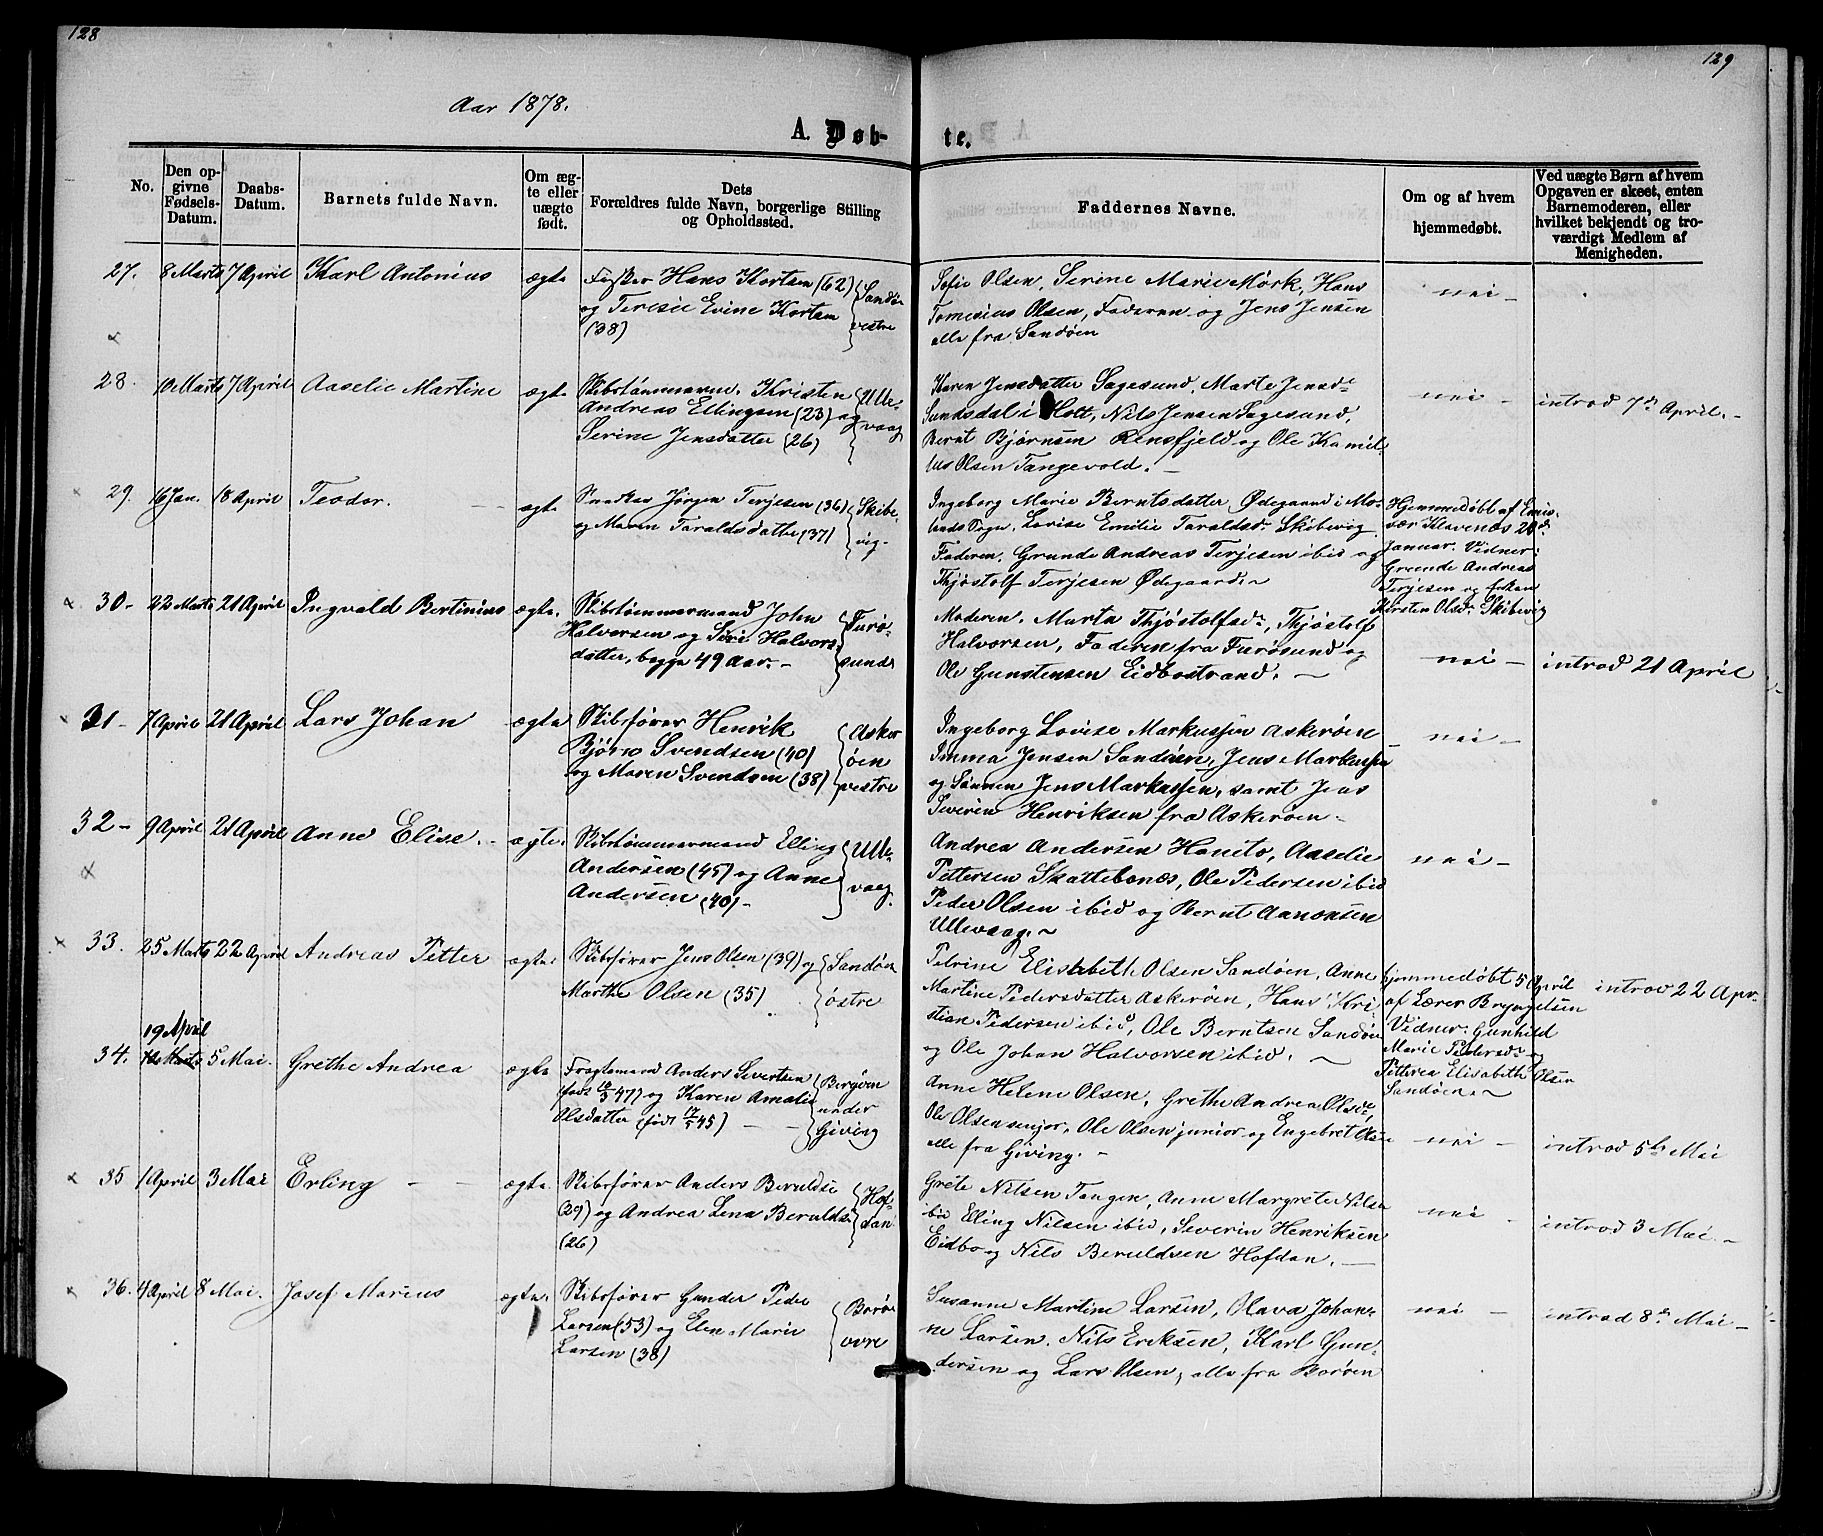 128
129
Aar 1878.
A. Døb-
te.
No.
Den op-
givne
Fødsels-
Datum.
Daabs-
Datum.
Barnets fulde Navn.
Om æg-
te eller
uægte
født.
Dets
Forældres fulde Navn, borgerlige Stilling
og Opholdssted.
Faddernes Navne.
Om og af hvem
hjemmedøbt.
Ved uægte Børn af hvem
Opgaven er skeet, enten
Barnemoderen, eller
hvilket bekjendt og tro-
værdigt Medlem af
Menigheden.
27. 8 Marts 7 April Karl Antonius ægte
Fisker Hans Kortsen (62)
og Teresie Evine Kortsen
(38)
Sandøen
vestre
Sofie Olsen, Serine Marie Mørk, Hans
Tomesius Olsen, Faderen og Jens Jensen
alle fra Sandøen
nei -
28. 10 Marts 7 April Aaselie Martine ægte
Skibstømmerm. Kristen
Andreas Ellingsen (23) og
Serine Jensdatter (26)
Ulle-
vaag
Karen Jensdatter Sagesund, Marte Jensd.
Sundsdal i Holt, Nils Jensen Sagesund,
Bernt Bjørnsen Rensfjeld og Ole Kamil-
lus Olsen Tangevold. -
nei -
introd 7de April. -
29. 16 Jan. 18 April Teodor. ægte
Jørgen Terjesen (36)
og Maren Taraldsdatter (37)
Skibe-
vig-
Ingeborg Marie Berntsdatter Ødegaard i Mo-
lands Sogn, Lovise Emilie Taraldsd. Skibevig
Faderen, Grunde Andreas Terjesen ibid og
Thjøstolf Terjesen Ødegaard. ~
Hjemmedøbt af Emis-
sær Klavenæs 20de
Januar. Vidner:
Greunde Andreas
Terjesen og Enken
Kirsten Olsd. Skibevig
30- 22 Marts 21 April Ingvald Bertinius ægte.
Skibstømmermand John
Halvorsen og Siri Halvors-
datter, begge 49 Aar. -
Furø-
sund
Moderen, Marta Thjøstolfsd., Thjøstolf
Halvorsen, Faderen fra Furøsund og
Ole Gunstensen Eidbostrand. ~
nei -
introd 21 April
31- 7 April 21 April Lars Johan ægte
Skibsfører Henrik
Bjørn Svendsen (40)
og Maren Svendsen (38)
Asker
øen
vestre
Ingeborg Lovise Markussen Askerøen
Imma Jensen Sandøen, Jens Markussen
og Sønnen Jens Markussen, samt Jens
Severin Henriksen fra Askerøen-
nei -
32- 9 April 21 April Anne Elise. - ægte.
Skibstømmermand Elling
Andersen (45) og Anne
Andersen (40)-
Ulle-
vaag.
Andrea Andersen Haneto, Aaselie
Pettersen Skattebones, Ole Pedersen ibid
Peder Olsen ibid og Bernt Aanonsen
Ullevaag. ~
nei -
33. 25 Marts 22 April Andreas Petter ægte.
Skibsfører Jens Olsen (39) og
Marthe Olsen (35)
Sandøen
østre
Petrine Elisabeth Olsen Sandøen, Anne
Martine Pedersdatter Askerøen, Hans Kri-
stian Pedersen ibid, Ole Berntsen Sandøen
og Ole Johan Halvorsen ibid. ~
hjemmedøbt 5 April
af Lærer Bryngelsen
Vidner: Gunhild
Marie Pedersd. og
Petterea Elisabeth Olsen
Sandøen. ~
introd 22 Apr.
19 April
34. 5 Mai. Grethe Andrea ægte
Fragtemand Anders Sivertsen
(født 47) og Karen Amalie
Olsdatter (født 45) -
Bergøen
under
Giving
Anne Helene Olsen, Grethe Andrea Olsd.,
Ole Olsen senjor, Ole Olsen junior og Engebret Olsen
alle fra Giving. -
nei -
introd 5te Mai
35 1 April 3 Mai Erling - - ægte.
Skibsfører Anders Beruldse
(29) og Andrea Lena Beruldse
(26)
Hof-
dan
Grete Nilsen Tangen, Anne Margrete Nilsen
ibid Elling Nilsen ibid, Severin Henriksen
Eidbo og Nils Beruldsen Hofdan.
nei -
introd 3 Mai. -
36. 4 April 8 Mai. Josef Marius ægte.
Skibsfører Gunder Peder
Larsen (53) og Elen Marie
Larsen (38)
Borøe
øvre
Susanne Martine Larsen, Olava Johan-
ne Larsen, Nils Eriksen, Karl Gun-
dersen og Lars Olsen, alle fra Borøen
nei -
introd 8de Mai -